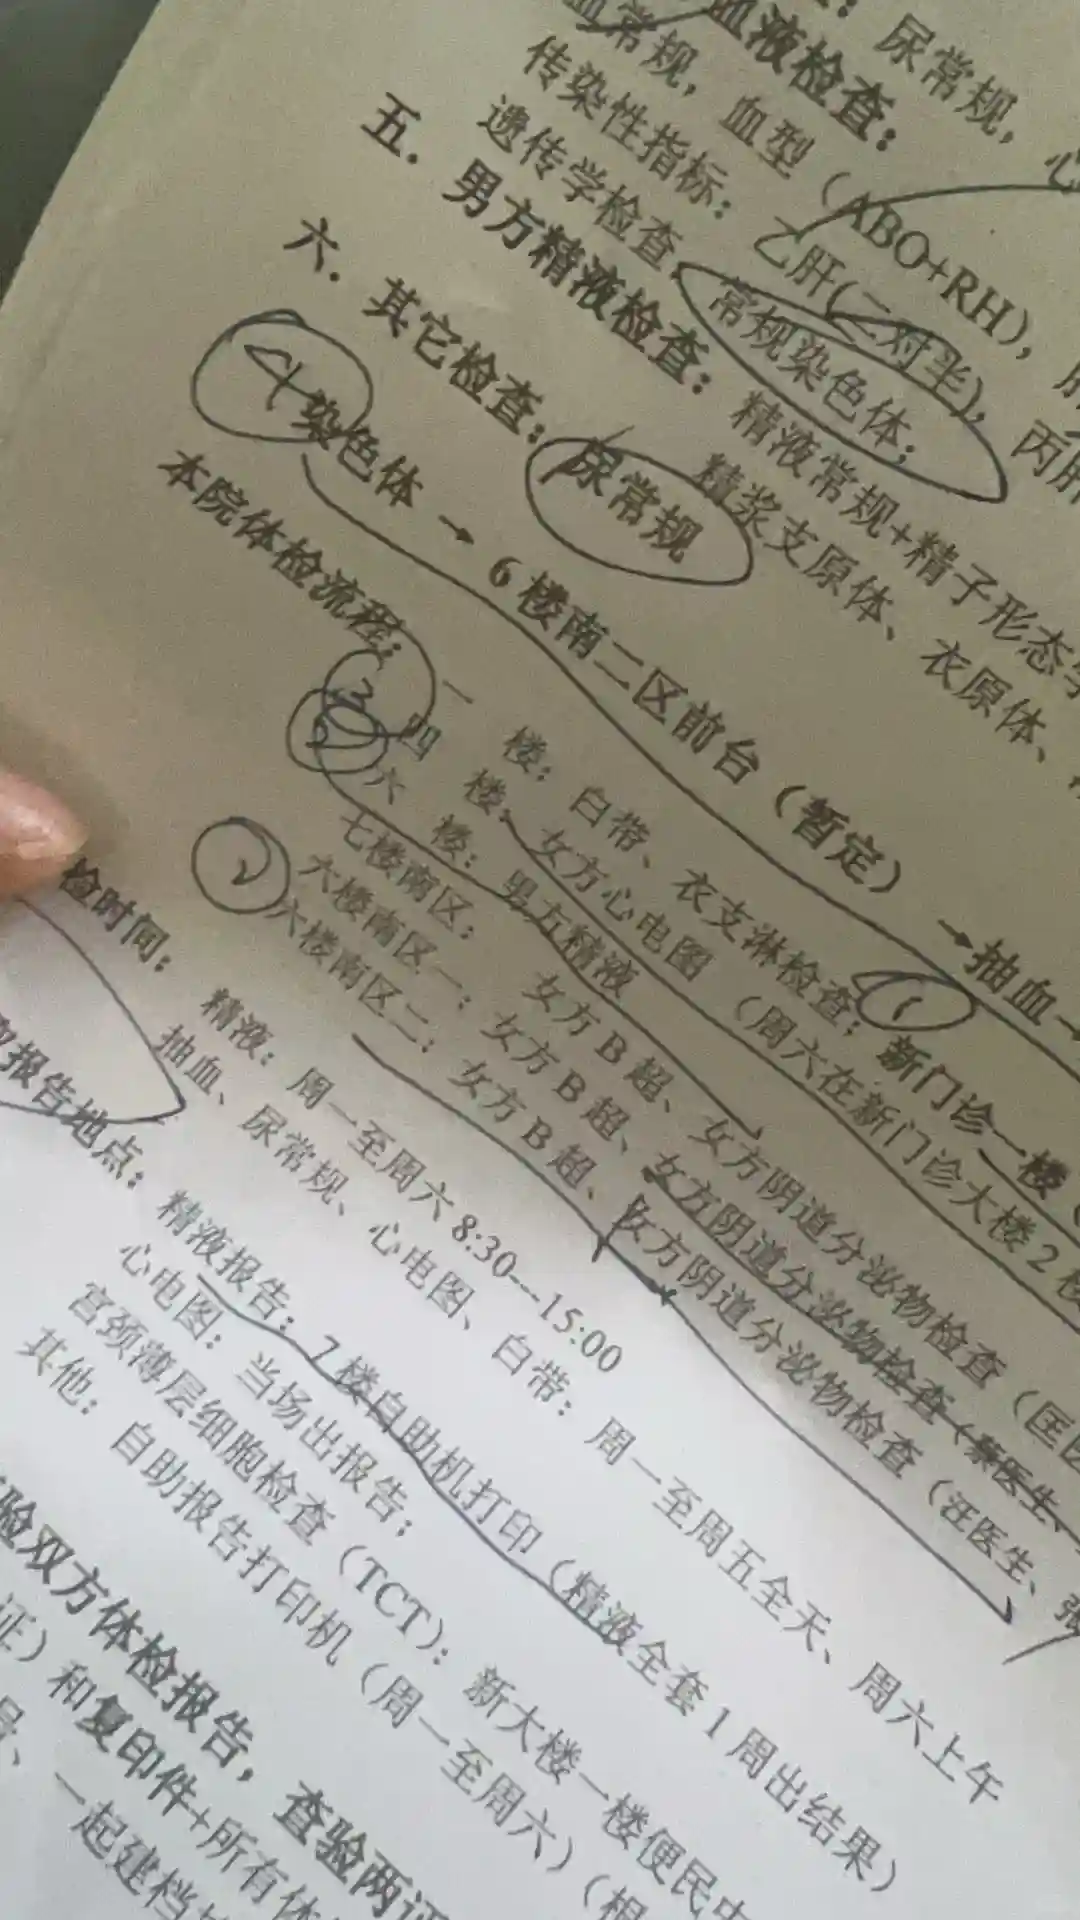 尿常规，
血液检查：
血常规，血型（ABO+RH），
传染性指标：乙肝(二对半)，丙肝
遗传学检查，常规染色体；
五．男方精液检查：精液常规+精子形态学
精浆支原体、衣原体、
六．其它检查：尿常规
染色体→6楼南二区前台（暂定）→抽血→
本院体检流程：
一 楼：白带、衣支淋检查；新门诊一楼（
四 楼：女方心电图（周六在新门诊大楼2楼
六 楼：男方精液
七楼南区：女方B超、女方阴道分泌物检查（匡医
六楼南区一：女方B超、女方阴道分泌物检查（蔡医生、
六楼南区二：女方B超、女方阴道分泌物检查（汪医生、张
1
2
3
检时间：精液：周一至周六8:30---15:00
抽血、尿常规、心电图、白带：周一至周五全天、周六上午
取报告地点：精液报告：7楼自助机打印（精液全套1周出结果）
心电图：当场出报告；
宫颈薄层细胞检查（TCT）：新大楼一楼便民中
其他：自助报告打印机（周一至周六）（相
验双方体检报告，查验两证
证）和复印件+所有体
号、一起建档